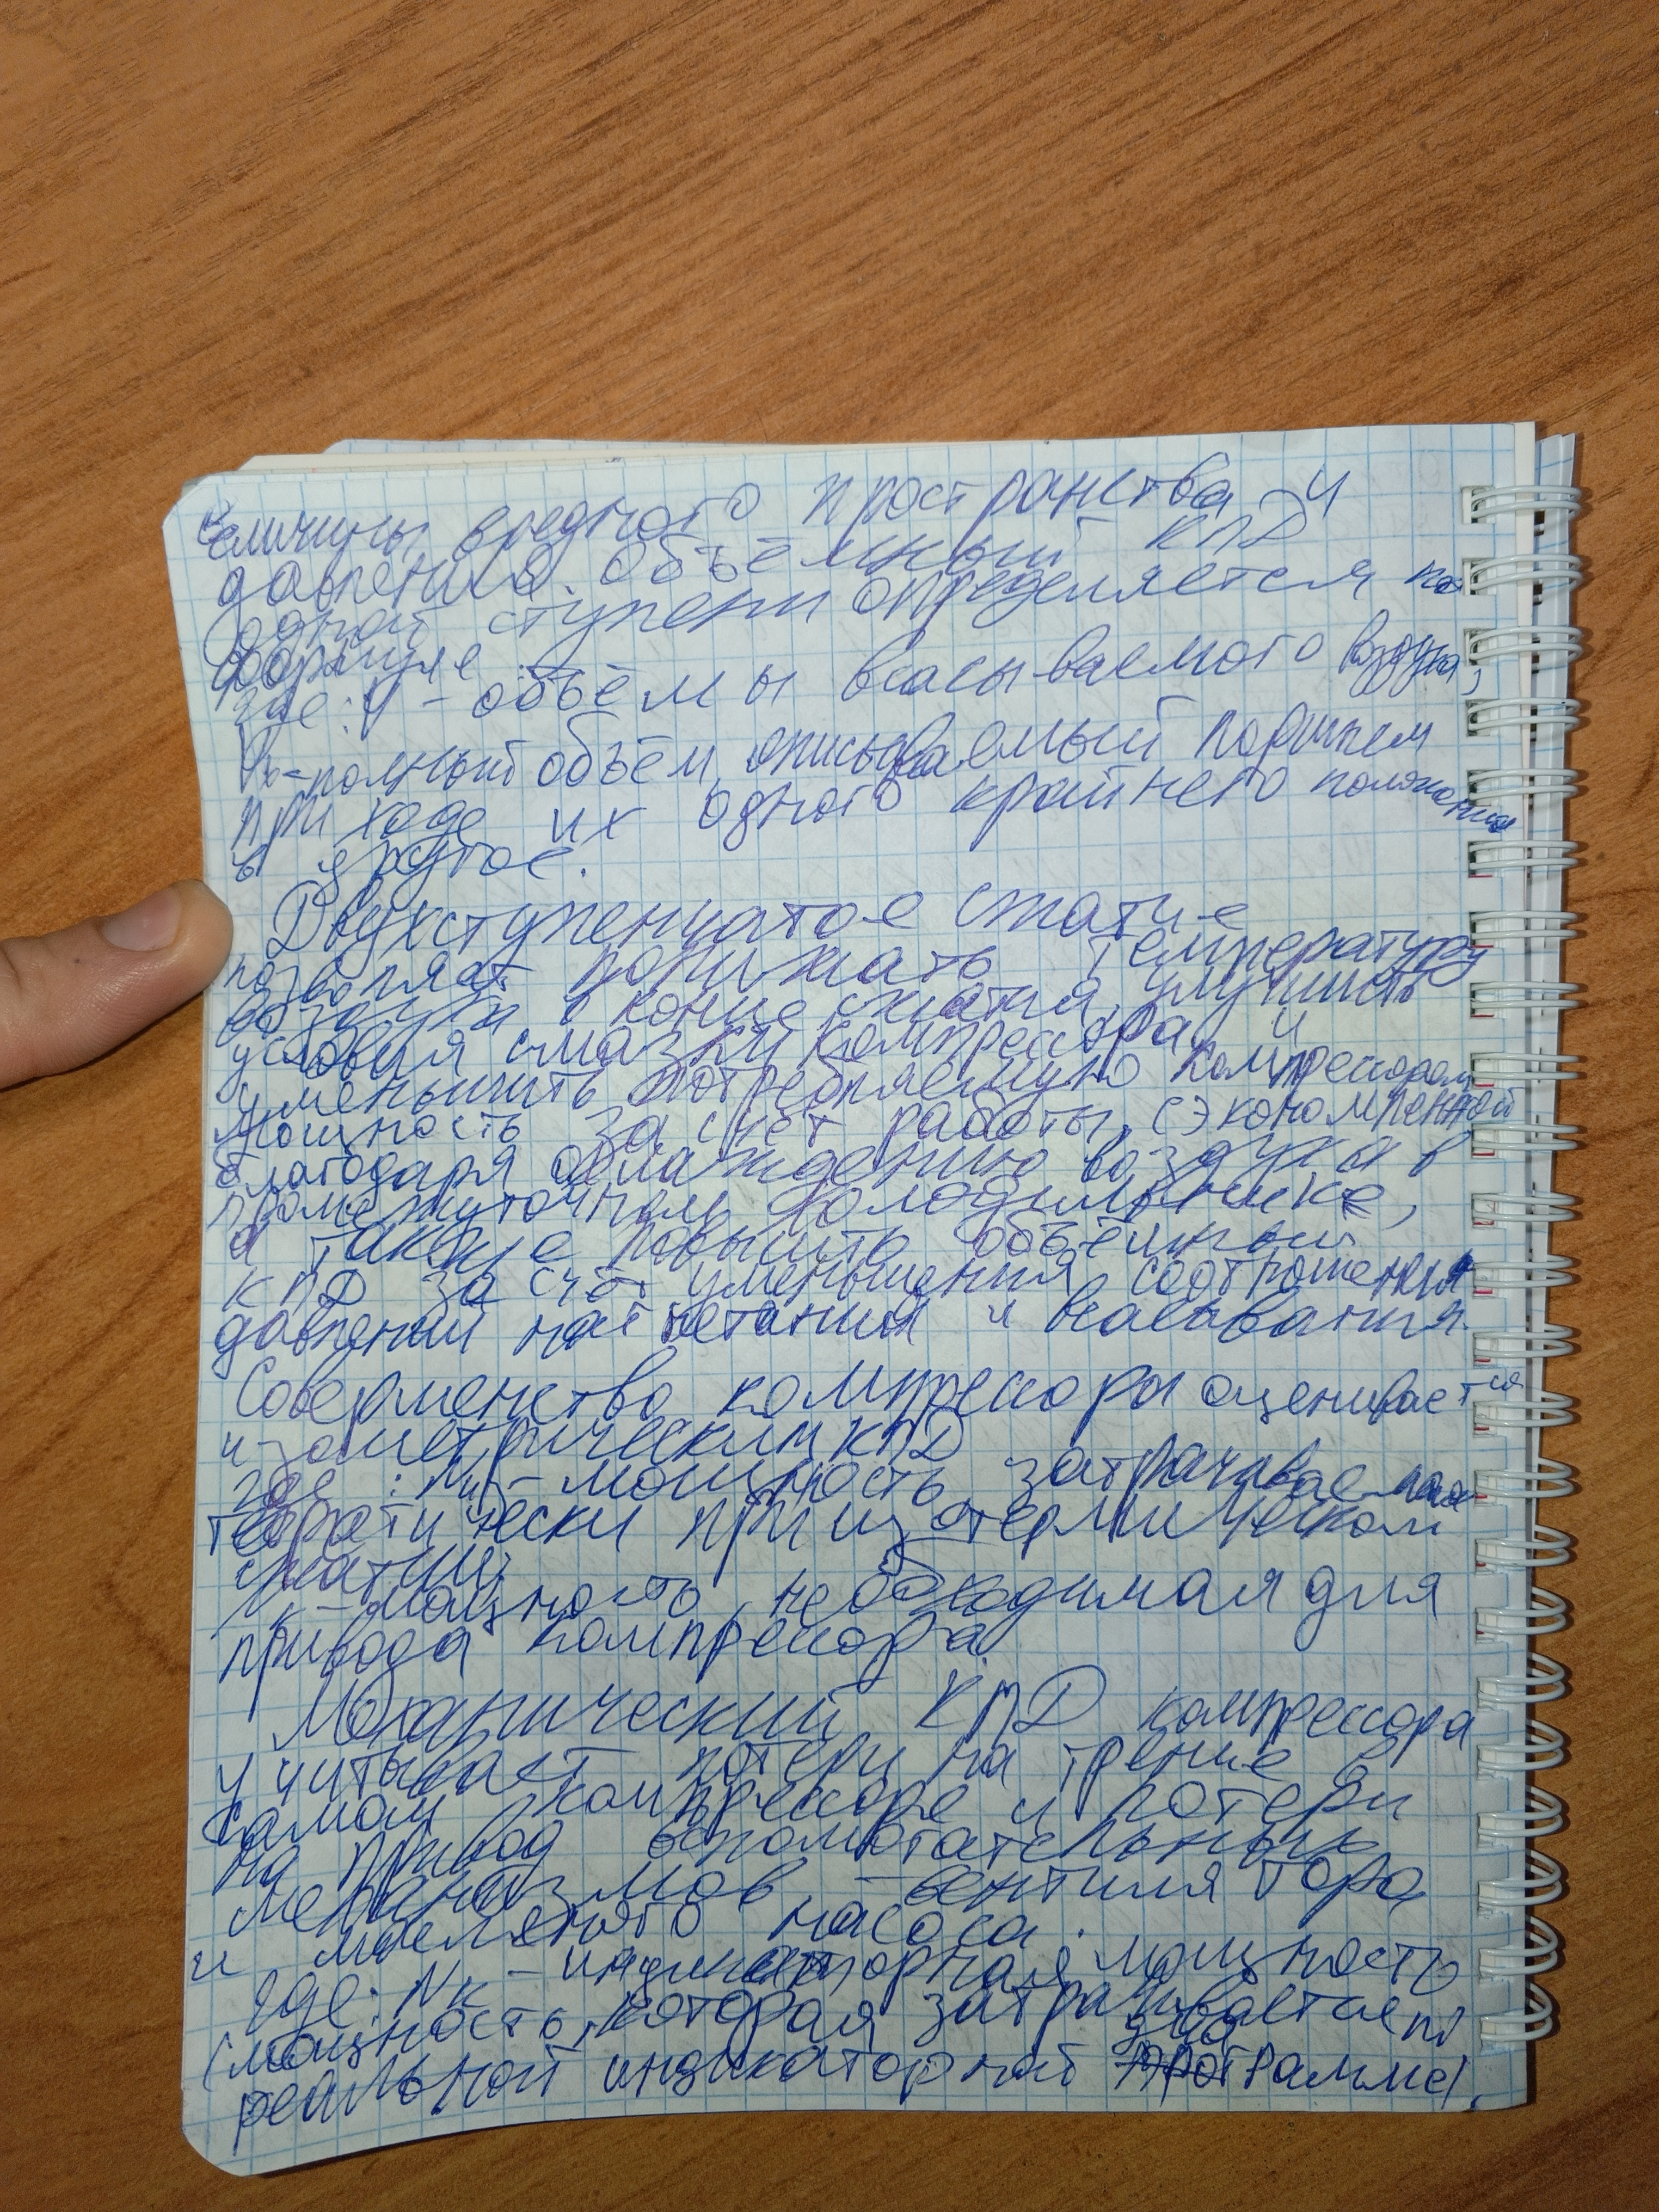 величины вредного пространства и
давления. Объёмный КПД
одной ступени определяется по
формуле:
где: V - объёмы всасываемого воздуха,
Vh - полный объём, описываемый поршнем
при ходе их одного крайнего положения
в другое.
Двухступенчатое сжатие
позволяет понижать температуру
воздуха в конце сжатия, улучшить
условия смазки компрессора и
уменьшить потребляемую компрессором
мощность за счёт работы, сэкономленной
благодаря охлаждению воздуха в
промежуточном холодильнике,
а также повысить объёмный
КПД за счёт уменьшения соотношения
давлений нагнетания и всасывания.
Совершенство компрессоры оценивается
изометрическим КПД
где: Nиз - мощность, затрачиваемая
теоретически при изотермическом
сжатии;
к - мощность, необходимая для
привода компрессора.
Механический КПД компрессора
учитывает потери на трение в
самом компрессоре и потери
на привод вспомогательных
механизмов, - вентилятора
и масляного насоса.
где: Nк - индикаторная мощность
(мощность, которая затрачивается по
реальной индикаторной диаграмме).